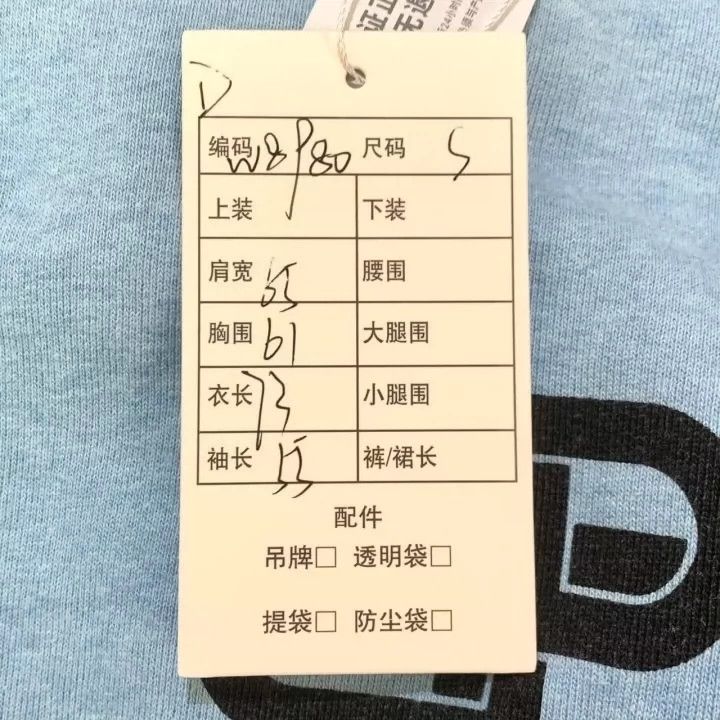 证正
无退
24小时
D
编码 W8P80 尺码 S
上装 下装
肩宽 65 腰围
胸围 61 大腿围
衣长 73 小腿围
袖长 55 裤/裙长
配件
吊牌□ 透明袋□
提袋□ 防尘袋□